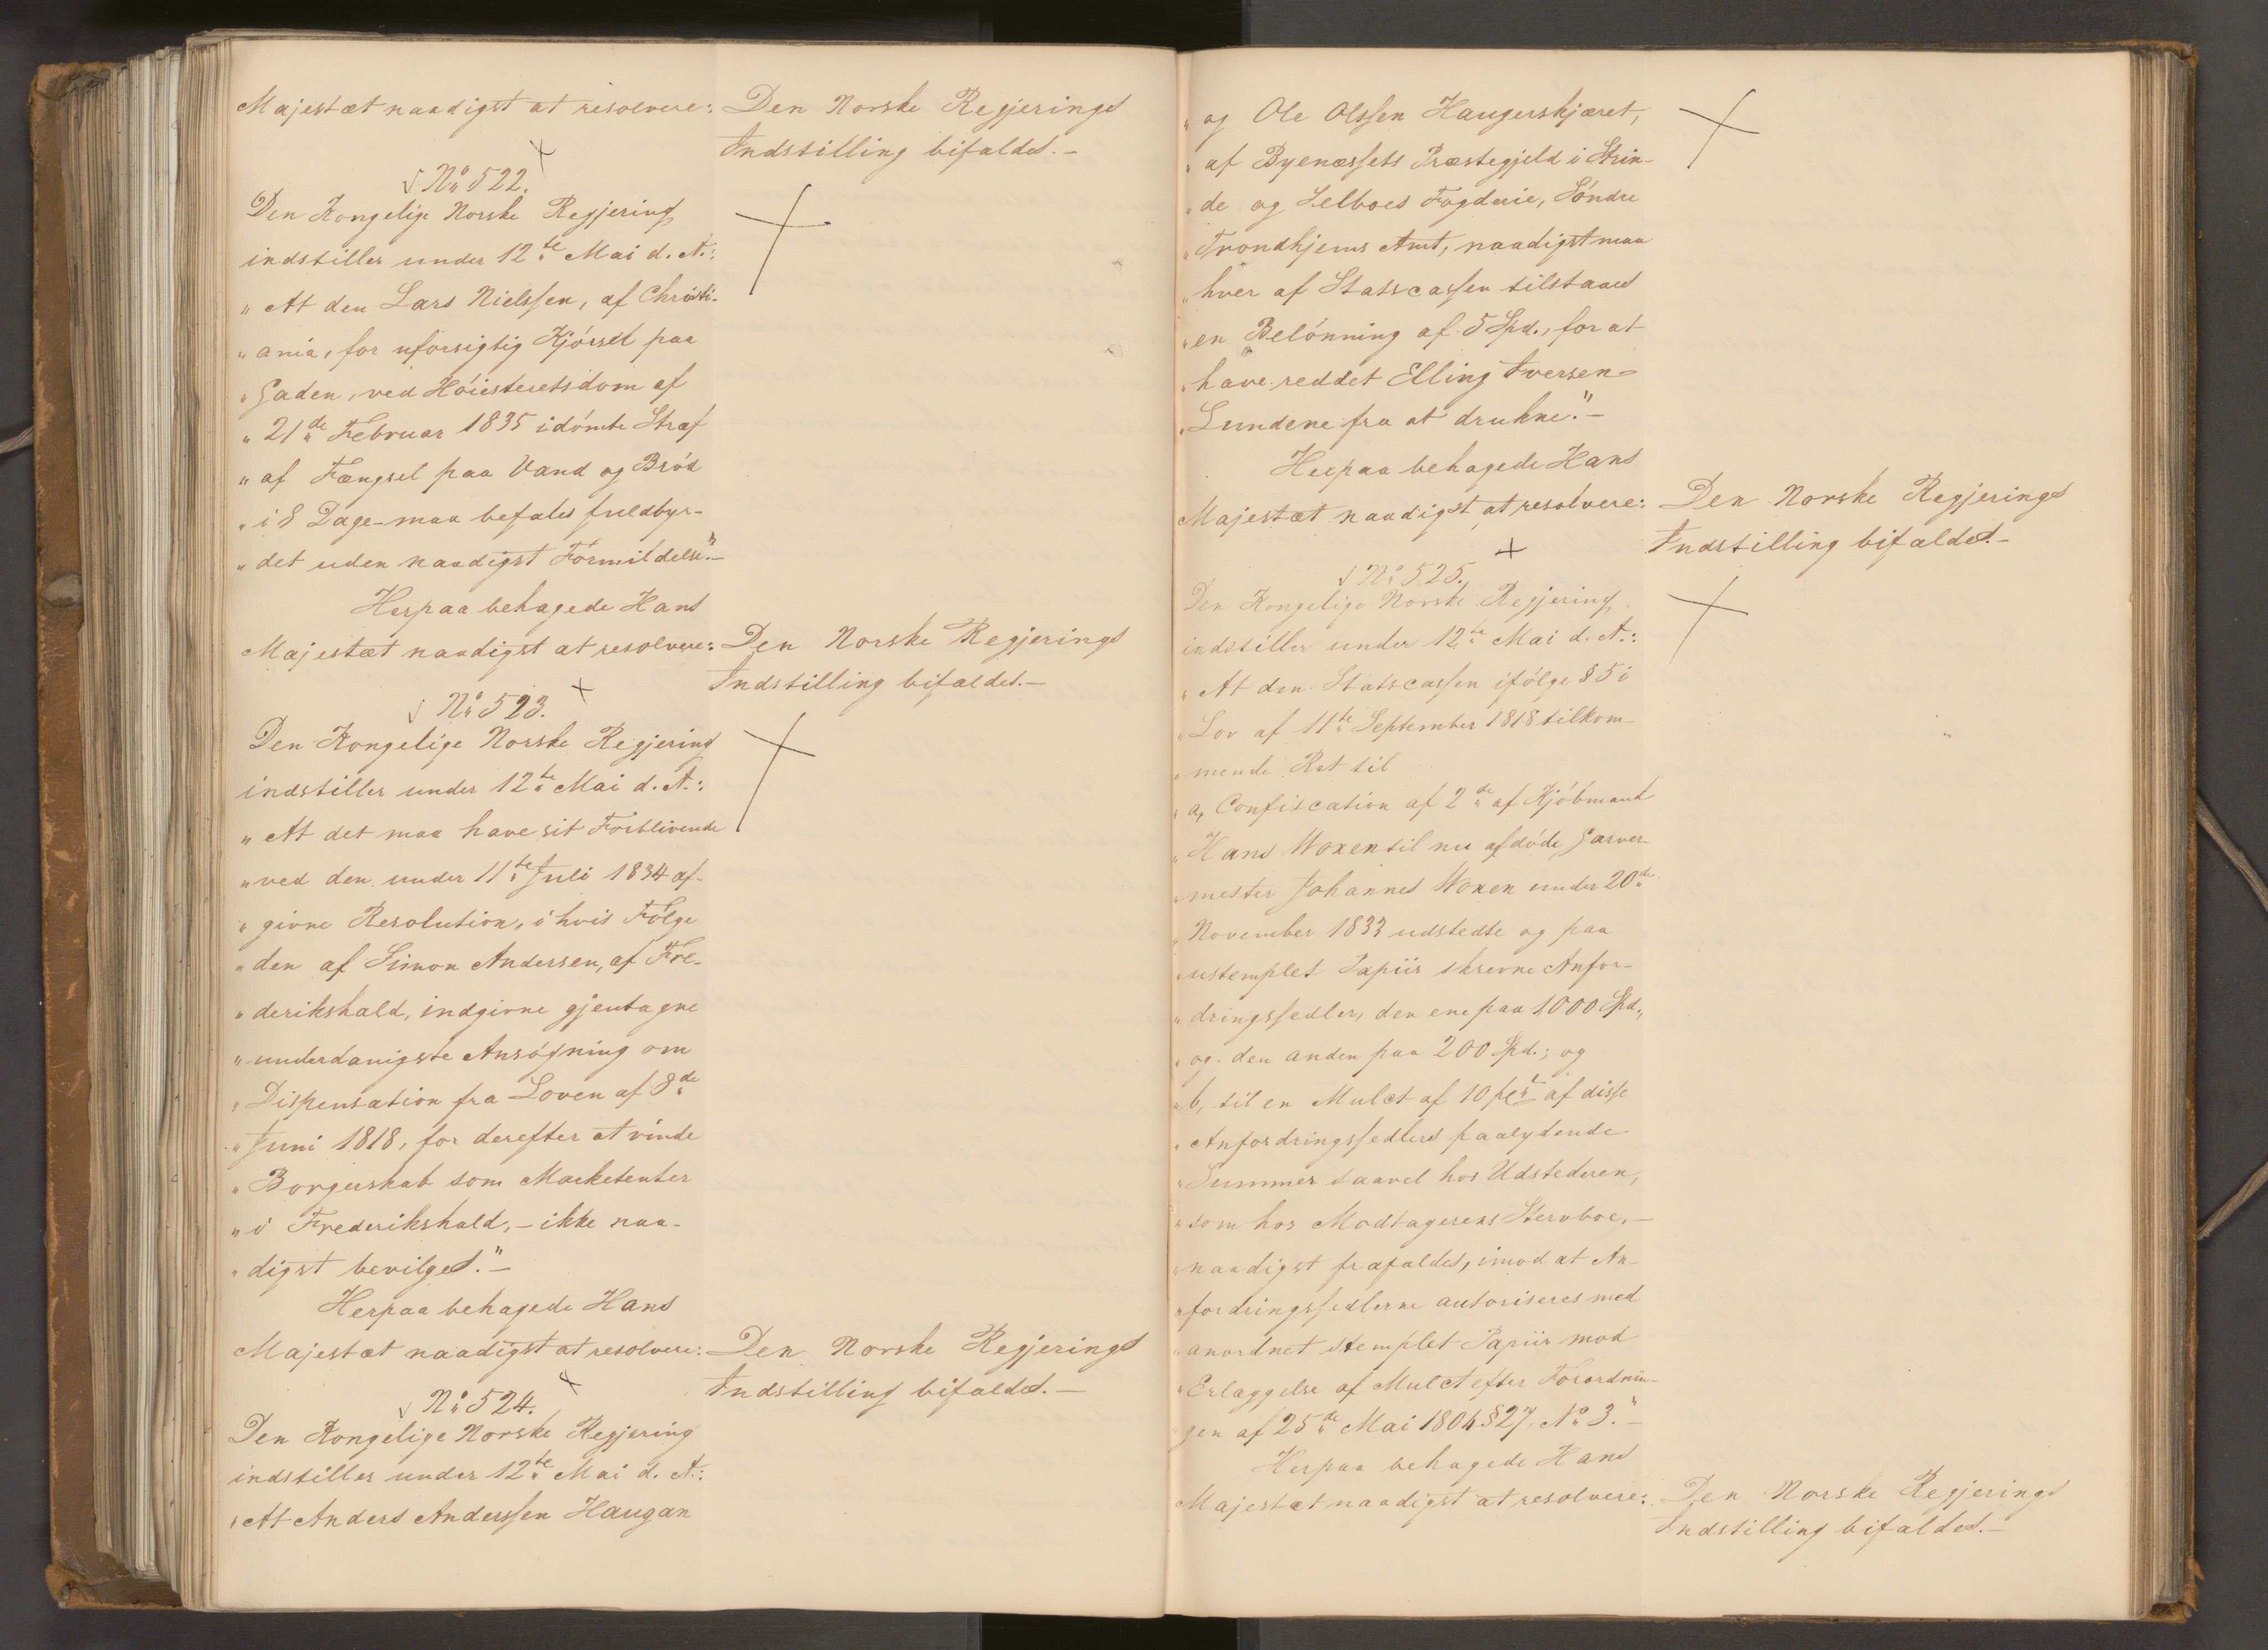 Majestæt naadigst at resolvere:
Den Norske Regjerings
Indstilling bifaldes.-
No 522.
Den Kongelige Norske Regjering
indstiller under 12te Mai d. A.:
"At den Lars Nielssen, af Christi-
"ania, for uforsigtig Kjørsel paa
"Gaden, ved Høiesteretsdom af
"21de Februar 1835 idømte Straf
"af Fængsel paa Vand og Brød
"i 8 Dage-maa befales fuldbyr-
"det uden naadigst Formildelse."-
Herpaa behagede Hans
Majestæt naadigst at resolvere:
Den Norske Regjerings
Indstilling bifaldes.-
No 523.
Den Kongelige Norske Regjering
indstiller under 12te Mai d. A.:
"At det maa have sit Forblivende
"ved den under 11te Juli 1834 af-
"givne Resolution, i hvis Følge
"den af Simon Andersen, af Fre-
"derikshald, indgivne gjentagne
"underdanigste Ansøgning om
"Dispensation fra Loven af 8de
"Juni 1818, for derefter at vinde
"Borgerskab som Marketenter
"i Frederikshald,- ikke naa-
"digst bevilges."-
Herpaa behagede Hans
Majestæt naadigst at resolvere:
Den Norske Regjerings
Indstilling bifaldes.-
No 524.
Den Kongelige Norske Regjering
indstiller under 12te Mai d. A.:
"At Anders Anderssen Haugan
"og Ole Olssen Haugerskjæret,
"af Byenæssets Præstegjeld i Strin-
"de og Selboes Fogderie, Søndre
"Trondhjems Amt, naadigst maa
"hver af Statscassen tilstaaes
"en Belønning af 5 Spd., for at
"have reddet Elling Iversen
"Lundene fra at drukne."-
Herpaa behagede Hans
Majestæt naadigst at resolvere:
Den Norske Regjerings
Indstilling bifaldes.-
No 525.
Den Kongelige Norske Regjering
indstiller under 12te Mai d. A.:
"At den Statscassen ifølge § 5 i
"Lov af 11te September 1818 tilkom-
"mende Ret til
"a, Confiscation af 2de af Kjøbmand
"Hans Woxen til nu afdøde Garver-
"mester Johannes Woxen under 20de
"November 1833 udstedte og paa
"ustemplet Papiir skrevne Anfor-
"dringssedler, den ene paa 1000 Spd.,
"og den anden paa 200 Spd.; og
"b, til en Mulct af 10 pCt af disse
"Anfordringssedlers paalydende
"Summer saavel hos Udstederen,
"som hos Modtagerens Stervboe,-
"naadigst frafaldes, imod at An-
"fordringssedlerne autoriseres med
"anordnet stemplet Papiir mod
"Erlæggelse af Mulct efter Forordnin-
"gen af 25de Mai 1804 § 27, No 3."-
Herpaa behagede Hans
Majestæt naadigst at resolvere:
Den Norske Regjerings
Indstilling bifaldes.-